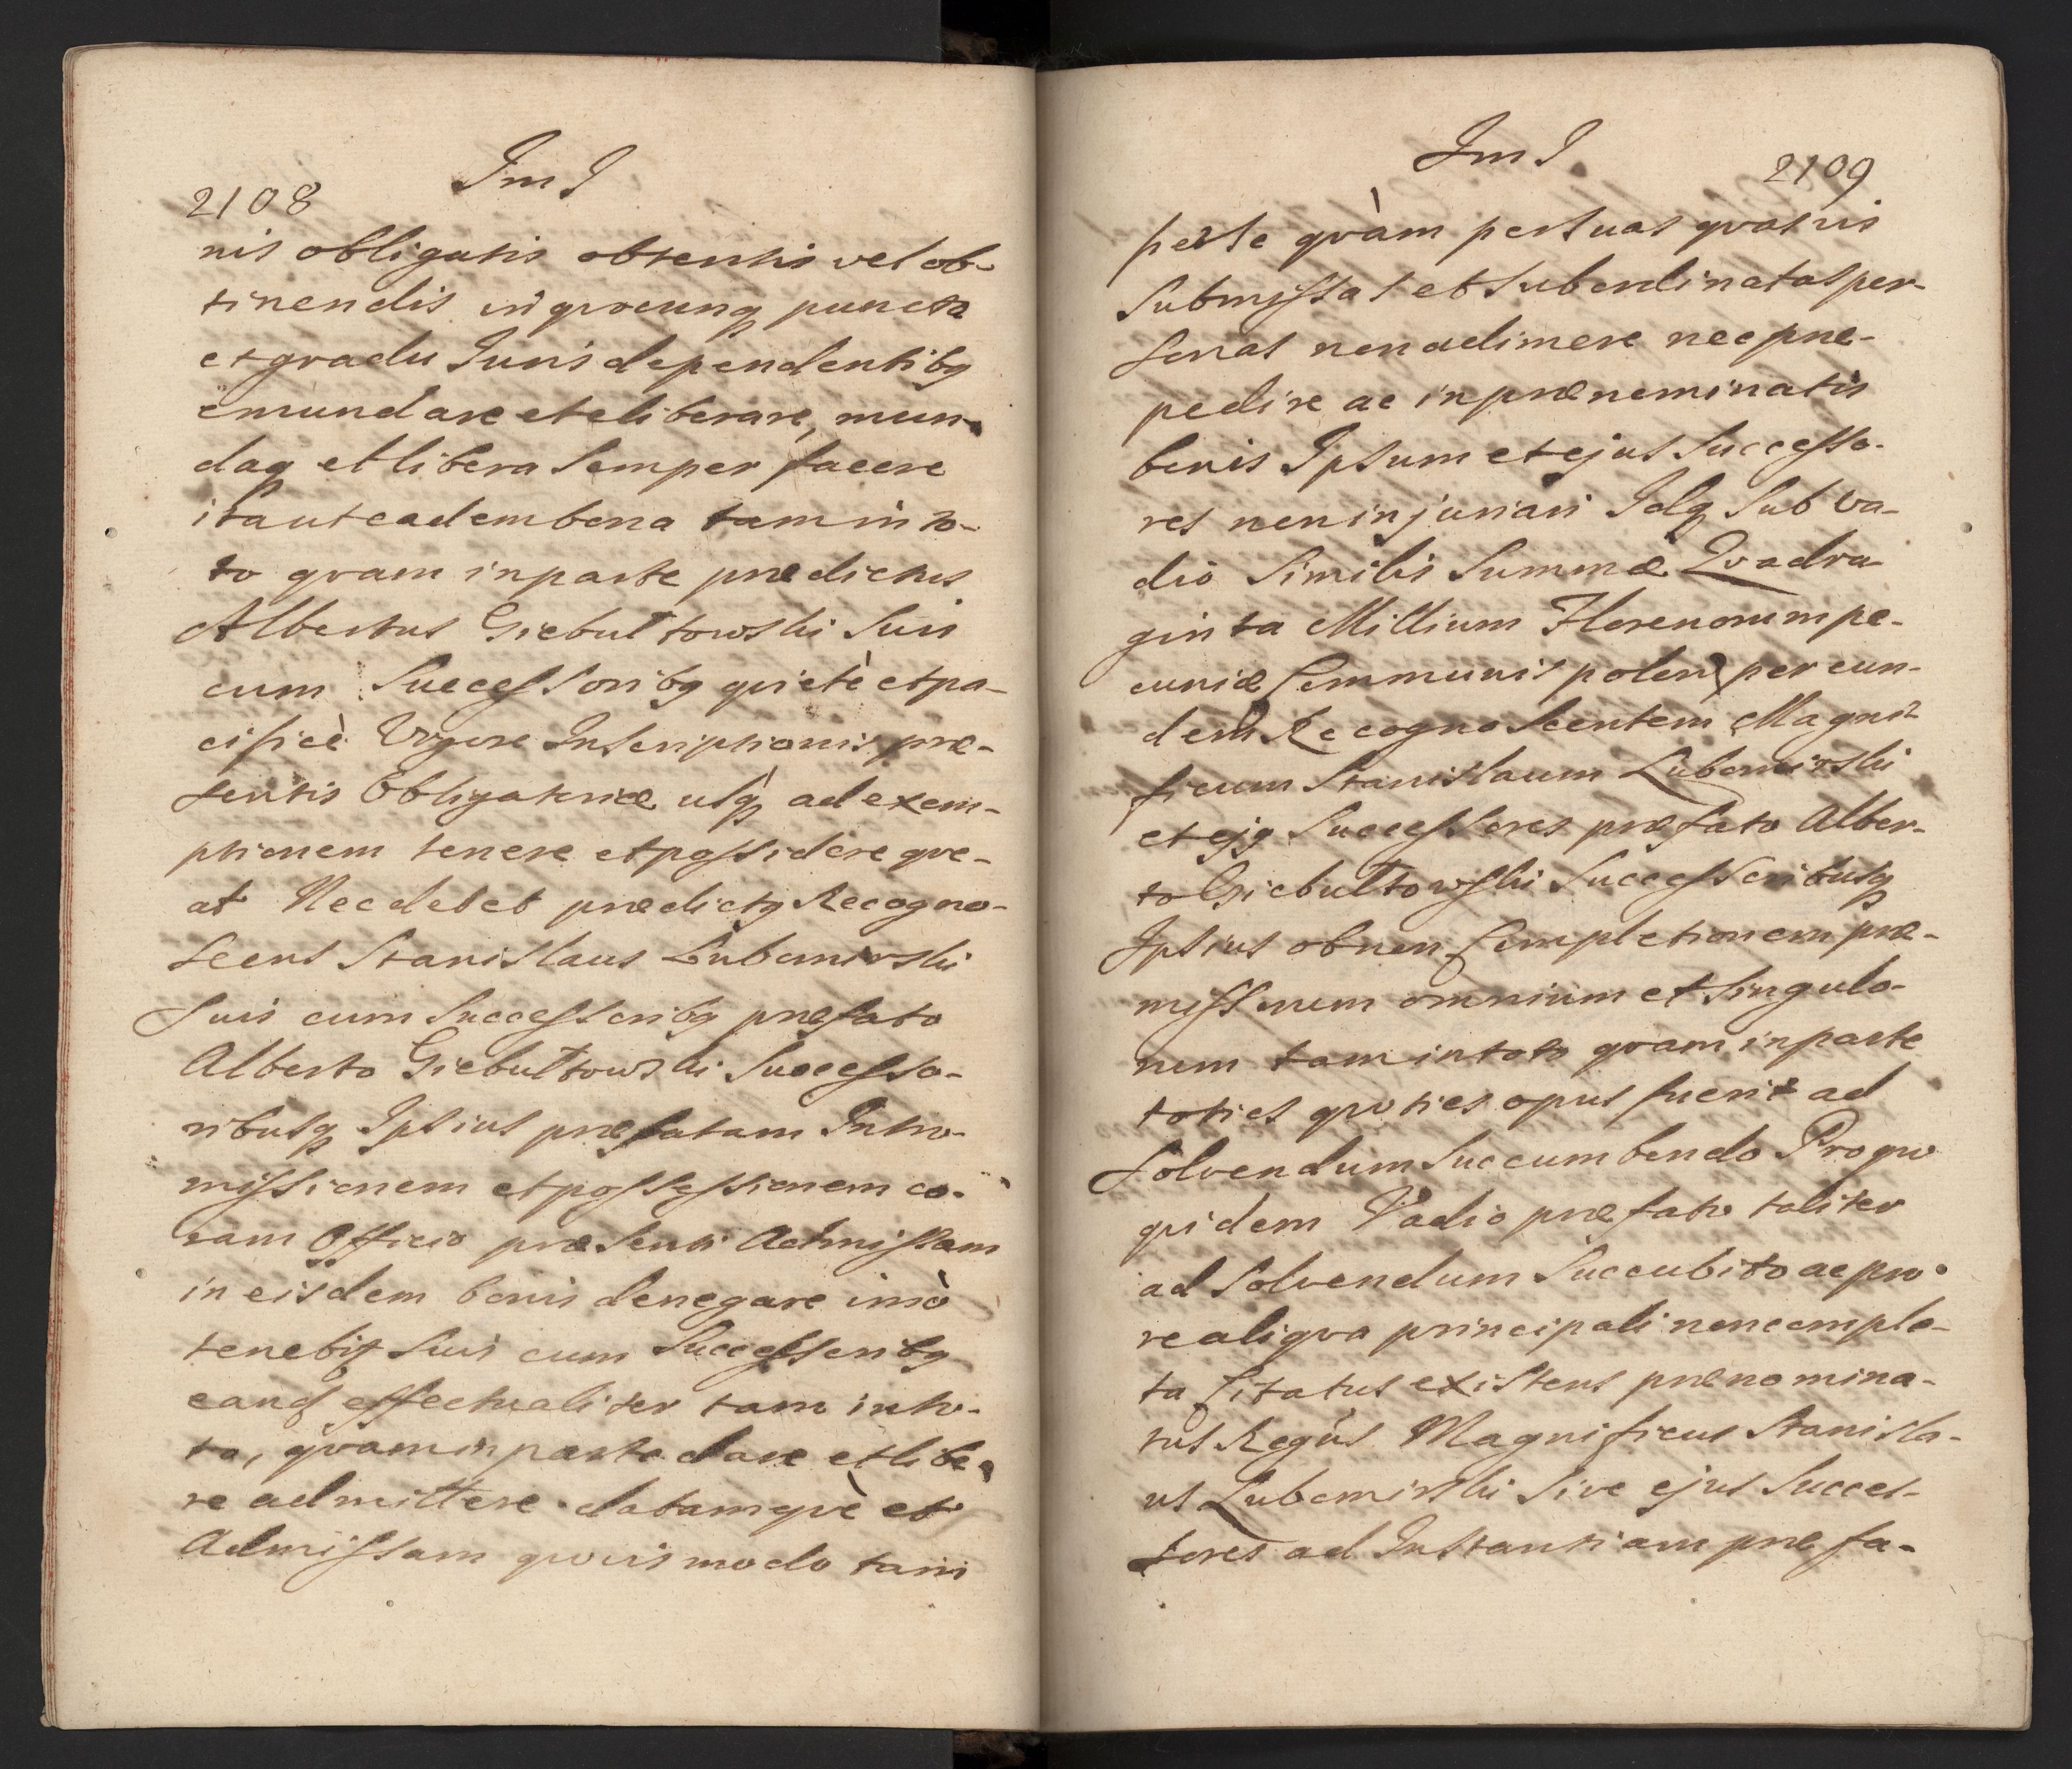 2108
Im I
nis obligatis obtentis vel ob-
tinendis in qvocunq puncto
et gradu Juris dependentibq
emundare et eliberare, mun-
daq et libera Semper facere
ita ut eadem bona tam in to-
to qvam in parte prædictus
Albertus Giebułtowski Suis
cum Successoribq qviete et pa-
cificè Vigore Inscriptionis præ-
sentis Obligatoriæ usq ad exem-
ptionem tenere et possidere qve-
at Nec debet prædictq Recogno-
scens Stanislaus Lubomirski
Suis cum Successoribq præfato
Alberto Giebułtowski Successo-
ribusq Ipsius præfatam Intro-
missionem et possessionem co-
ram Officio præsenti Admissam
in eisdem bonis denegare imò
tenebit Suis cum Successoribq
eand effectualiter tam in to-
to, qvam in parte dare et libe-
re admittere datamqvè et
Admissam qvovis modo tam
Im I
2109
per se qvàm per suas qvasvis
Submissas et Subordinatas per-
sonas non adimere nec præ-
pedire ac in prænominatis
bonis Ipsum et ejus Successo-
res non injuriari Idq Sub va-
dio Similis Summæ Qvadra
ginta Millium Florenorum pe-
cuniæ Communis polon per eun-
dem Recognoscentem Magni-
ficum Stanislaum Lubomirski
et ejq Successores præfato Alber-
to Giebułtowski Successoribusq
Ipsius ob non Completionem præ-
missorum omnium et Singulo-
rum tam in toto qvam in parte
toties qvoties opus fuerit ad
Solvendum Succumbendo Pro qvo
qvidem Vadio præfato taliter
ad Solvendum Succubito ac pro
re aliqva principali non comple-
ta Citatus existens prænomina-
tus Regns Magnificus Stanisla-
us Lubomirski Sive ejus Succes-
sores ad Instantiam præfa-